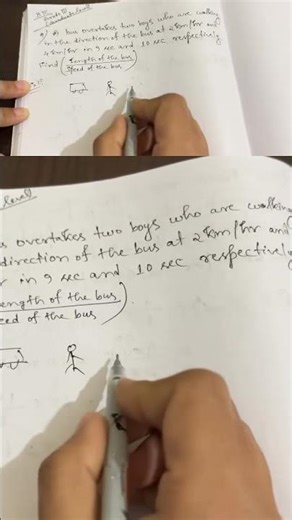 Candidate level
A bus overtakes two boys who are walking
in the direction of the bus at 2 km/hr and
4 km/hr in 9 sec and 10 sec respectively
Find (length of the bus
speed of the bus)
level
s overtakes two boys who are walking
direction of the bus at 2 km/hr and
r in 9 sec and 10 sec respectively
ength of the bus
eed of the bus)